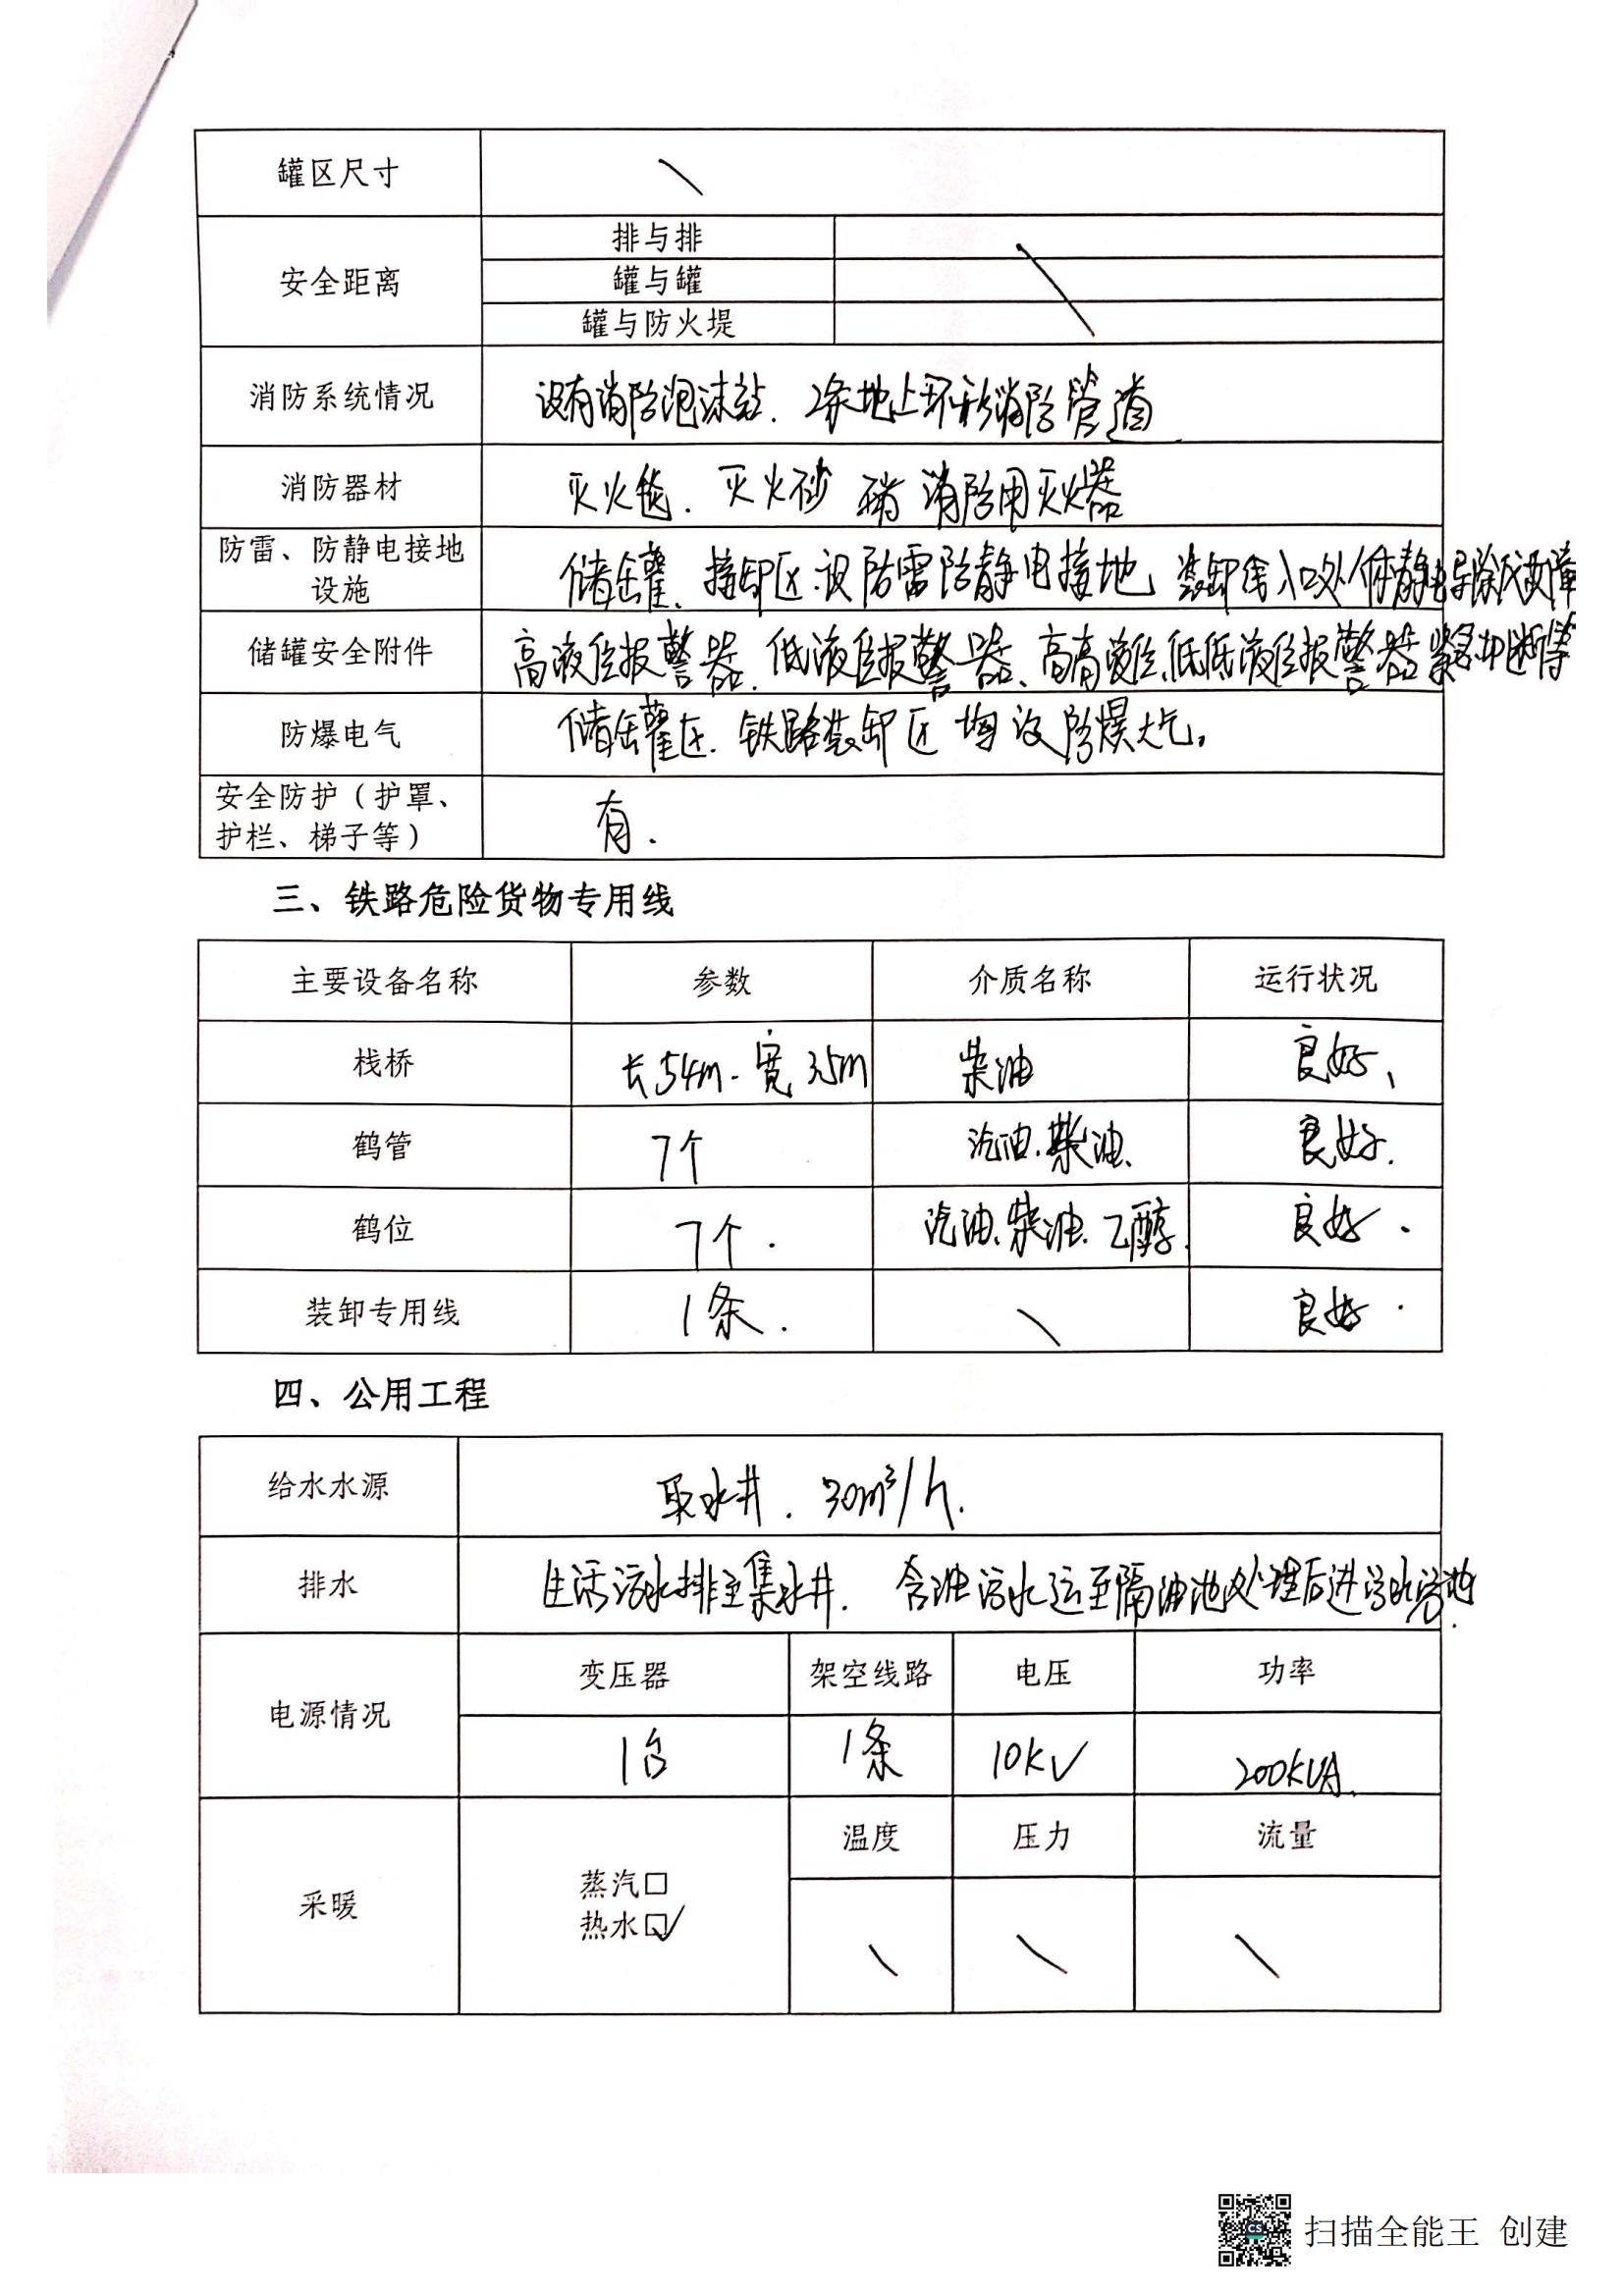 罐区尺寸 \
安全距离 排与排 \
罐与罐
罐与防火堤
消防系统情况 设有消防泡沫站. 2条地上环形消防管道
消防器材 灭火毯. 灭火砂 消防用灭火器
防雷、防静电接地
设施 储罐、接卸区设防雷防静电接地 装卸 入口处人体静电导除
储罐安全附件 高液位报警器. 低液位报警器、高高液位、低低液位报警器 紧急切断等
防爆电气 储罐区. 铁路装卸区均设防爆电气.
安全防护（护罩、
护栏、梯子等） 有.
三、铁路危险货物专用线
主要设备名称 参数 介质名称 运行状况
栈桥 长54m. 宽3.5m 柴油 良好、
鹤管 7个 汽油、柴油、 良好.
鹤位 7个. 汽油、柴油、乙醇. 良好.
装卸专用线 1条. \ 良好.
四、公用工程
给水水源 取水井. 30m³/h.
排水 生活污水排至集水井. 含油污水运至隔油池处理后进污水池.
电源情况 变压器 架空线路 电压 功率
1台 1条 10kV 200kVA.
采暖 蒸汽□ 温度 压力 流量
热水☑ \ \ \
扫描全能王 创建